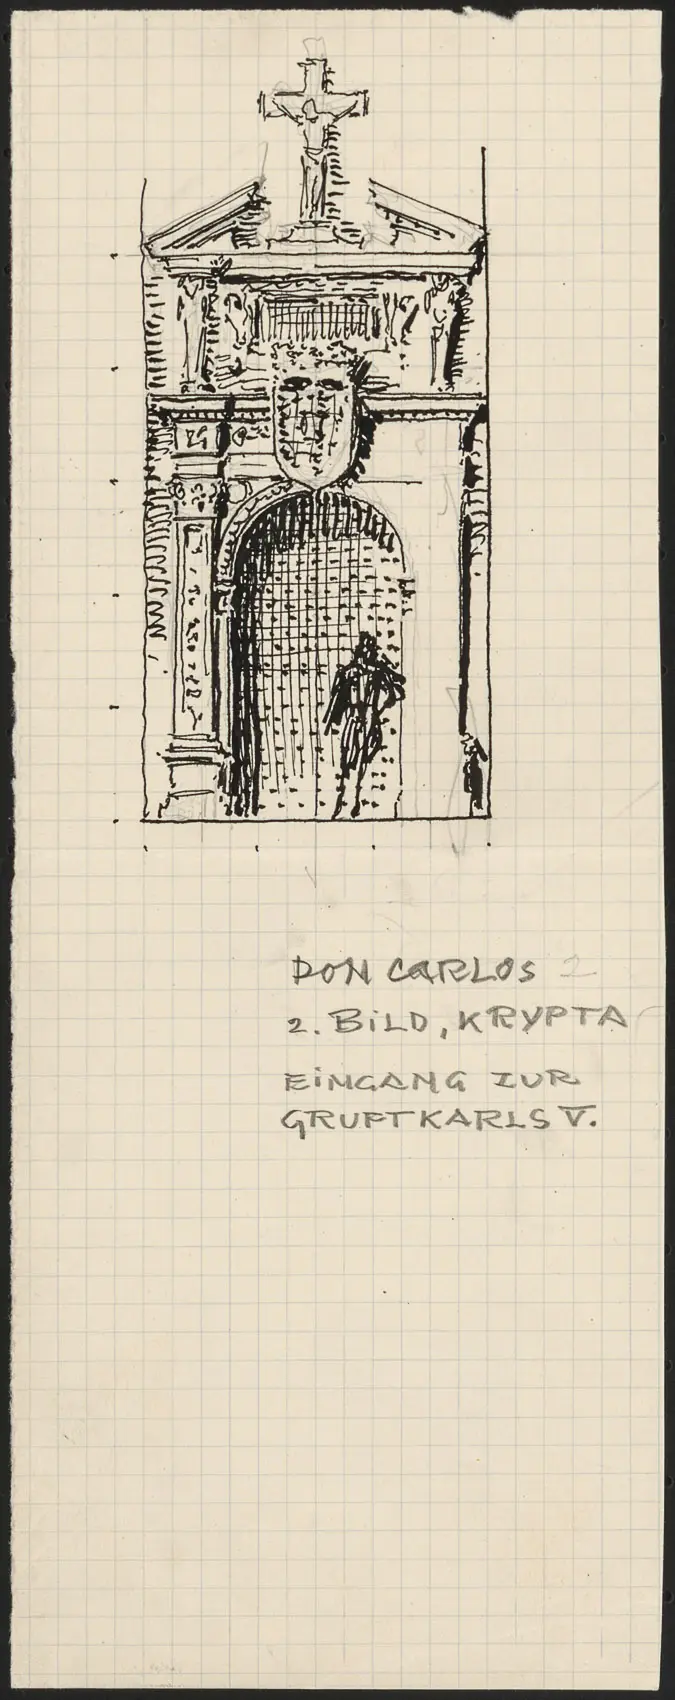 DON CARLOS 2
2. BILD, KRYPTA
EINGANG ZUR
GRUFT KARLS V.